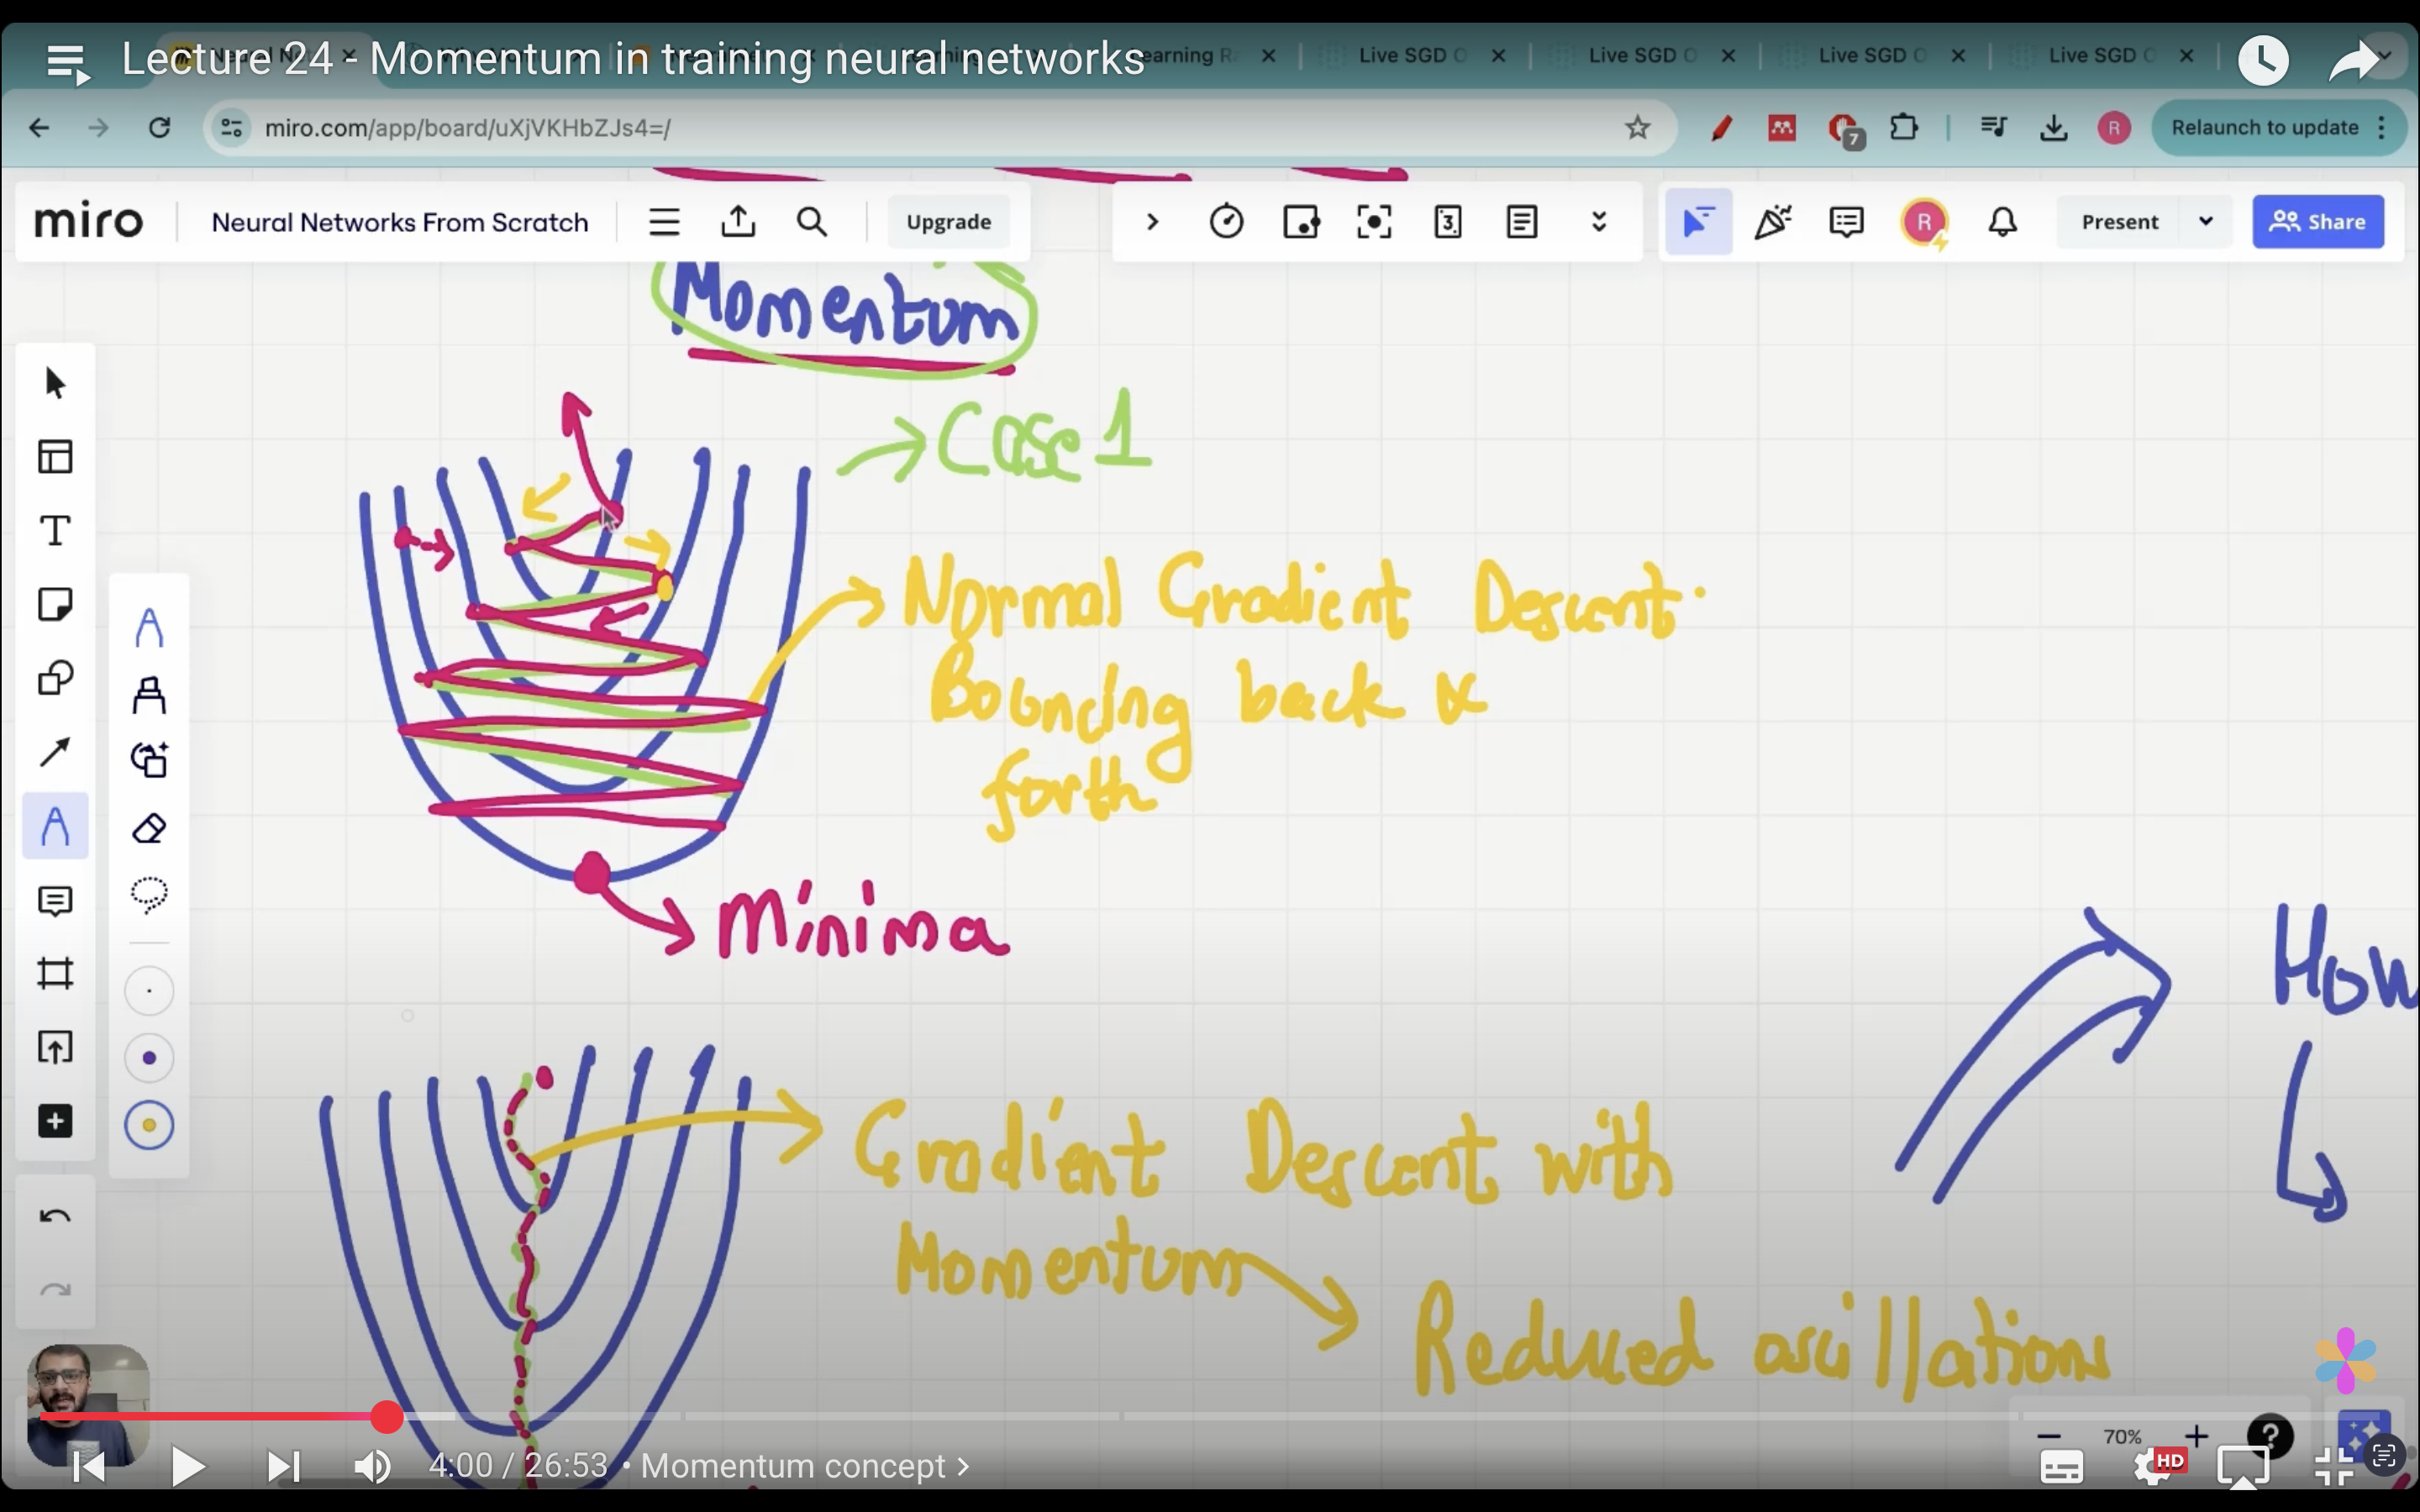 Lecture 24 - Momentum in training neural networks
Live SGD O
Live SGD O
Live SGD O
Live SGD O
miro.com/app/board/uXjVKHbZJs4=/
7
R
Relaunch to update
miro
Neural Networks From Scratch
Upgrade
3
R
Present
Share
Momentum
Case 1
Normal Gradient Descent
Bouncing back &
forth
Minima
How
Gradient Descent with
Momentum
Reduced oscillations
70%
?
4:00 / 26:53 • Momentum concept
HD